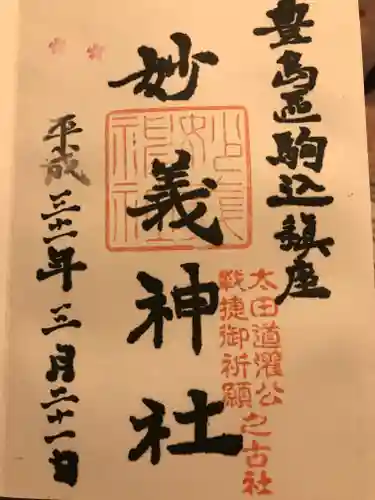 豊島區駒込鎮座
太田道灌公之古社
戦捷御祈願
妙義神社
平成三十一年三月二十一日